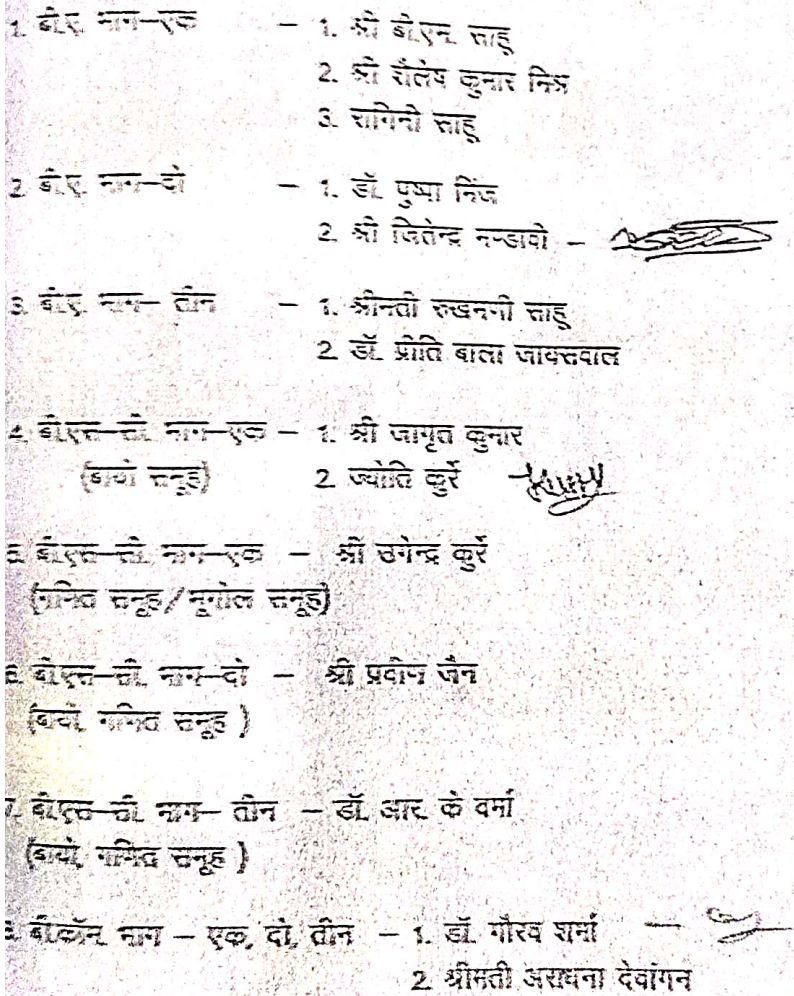 1. बी.ए. भाग–एक – 1. श्री बी.एन. साहू
2. श्री शैलेष कुमार मिश्र
3. रागिनी साहू
2. बी.ए. भाग–दो – 1. डॉ. पुष्पा मिंज
2. श्री जितेन्द्र मण्डावी –
3. बी.ए. भाग– तीन – 1. श्रीमती रुखमणी साहू
2. डॉ. प्रीति बाला जायसवाल
4. बी.एस–सी. भाग–एक – 1. श्री जागृत कुमार
(बायो समूह) 2. ज्योति कुर्रे
5. बी.एस–सी. भाग–एक – श्री उगेन्द्र कुर्रे
(गणित समूह/भूगोल समूह)
6. बी.एस–सी. भाग–दो – श्री प्रवीण जैन
(बायो, गणित समूह )
7. बी.एस–सी. भाग– तीन – डॉ. आर. के वर्मा
(बायो, गणित समूह )
8. बी.कॉम. भाग – एक, दो, तीन – 1. डॉ. गौरव शर्मा –
2. श्रीमती अराधना देवांगन